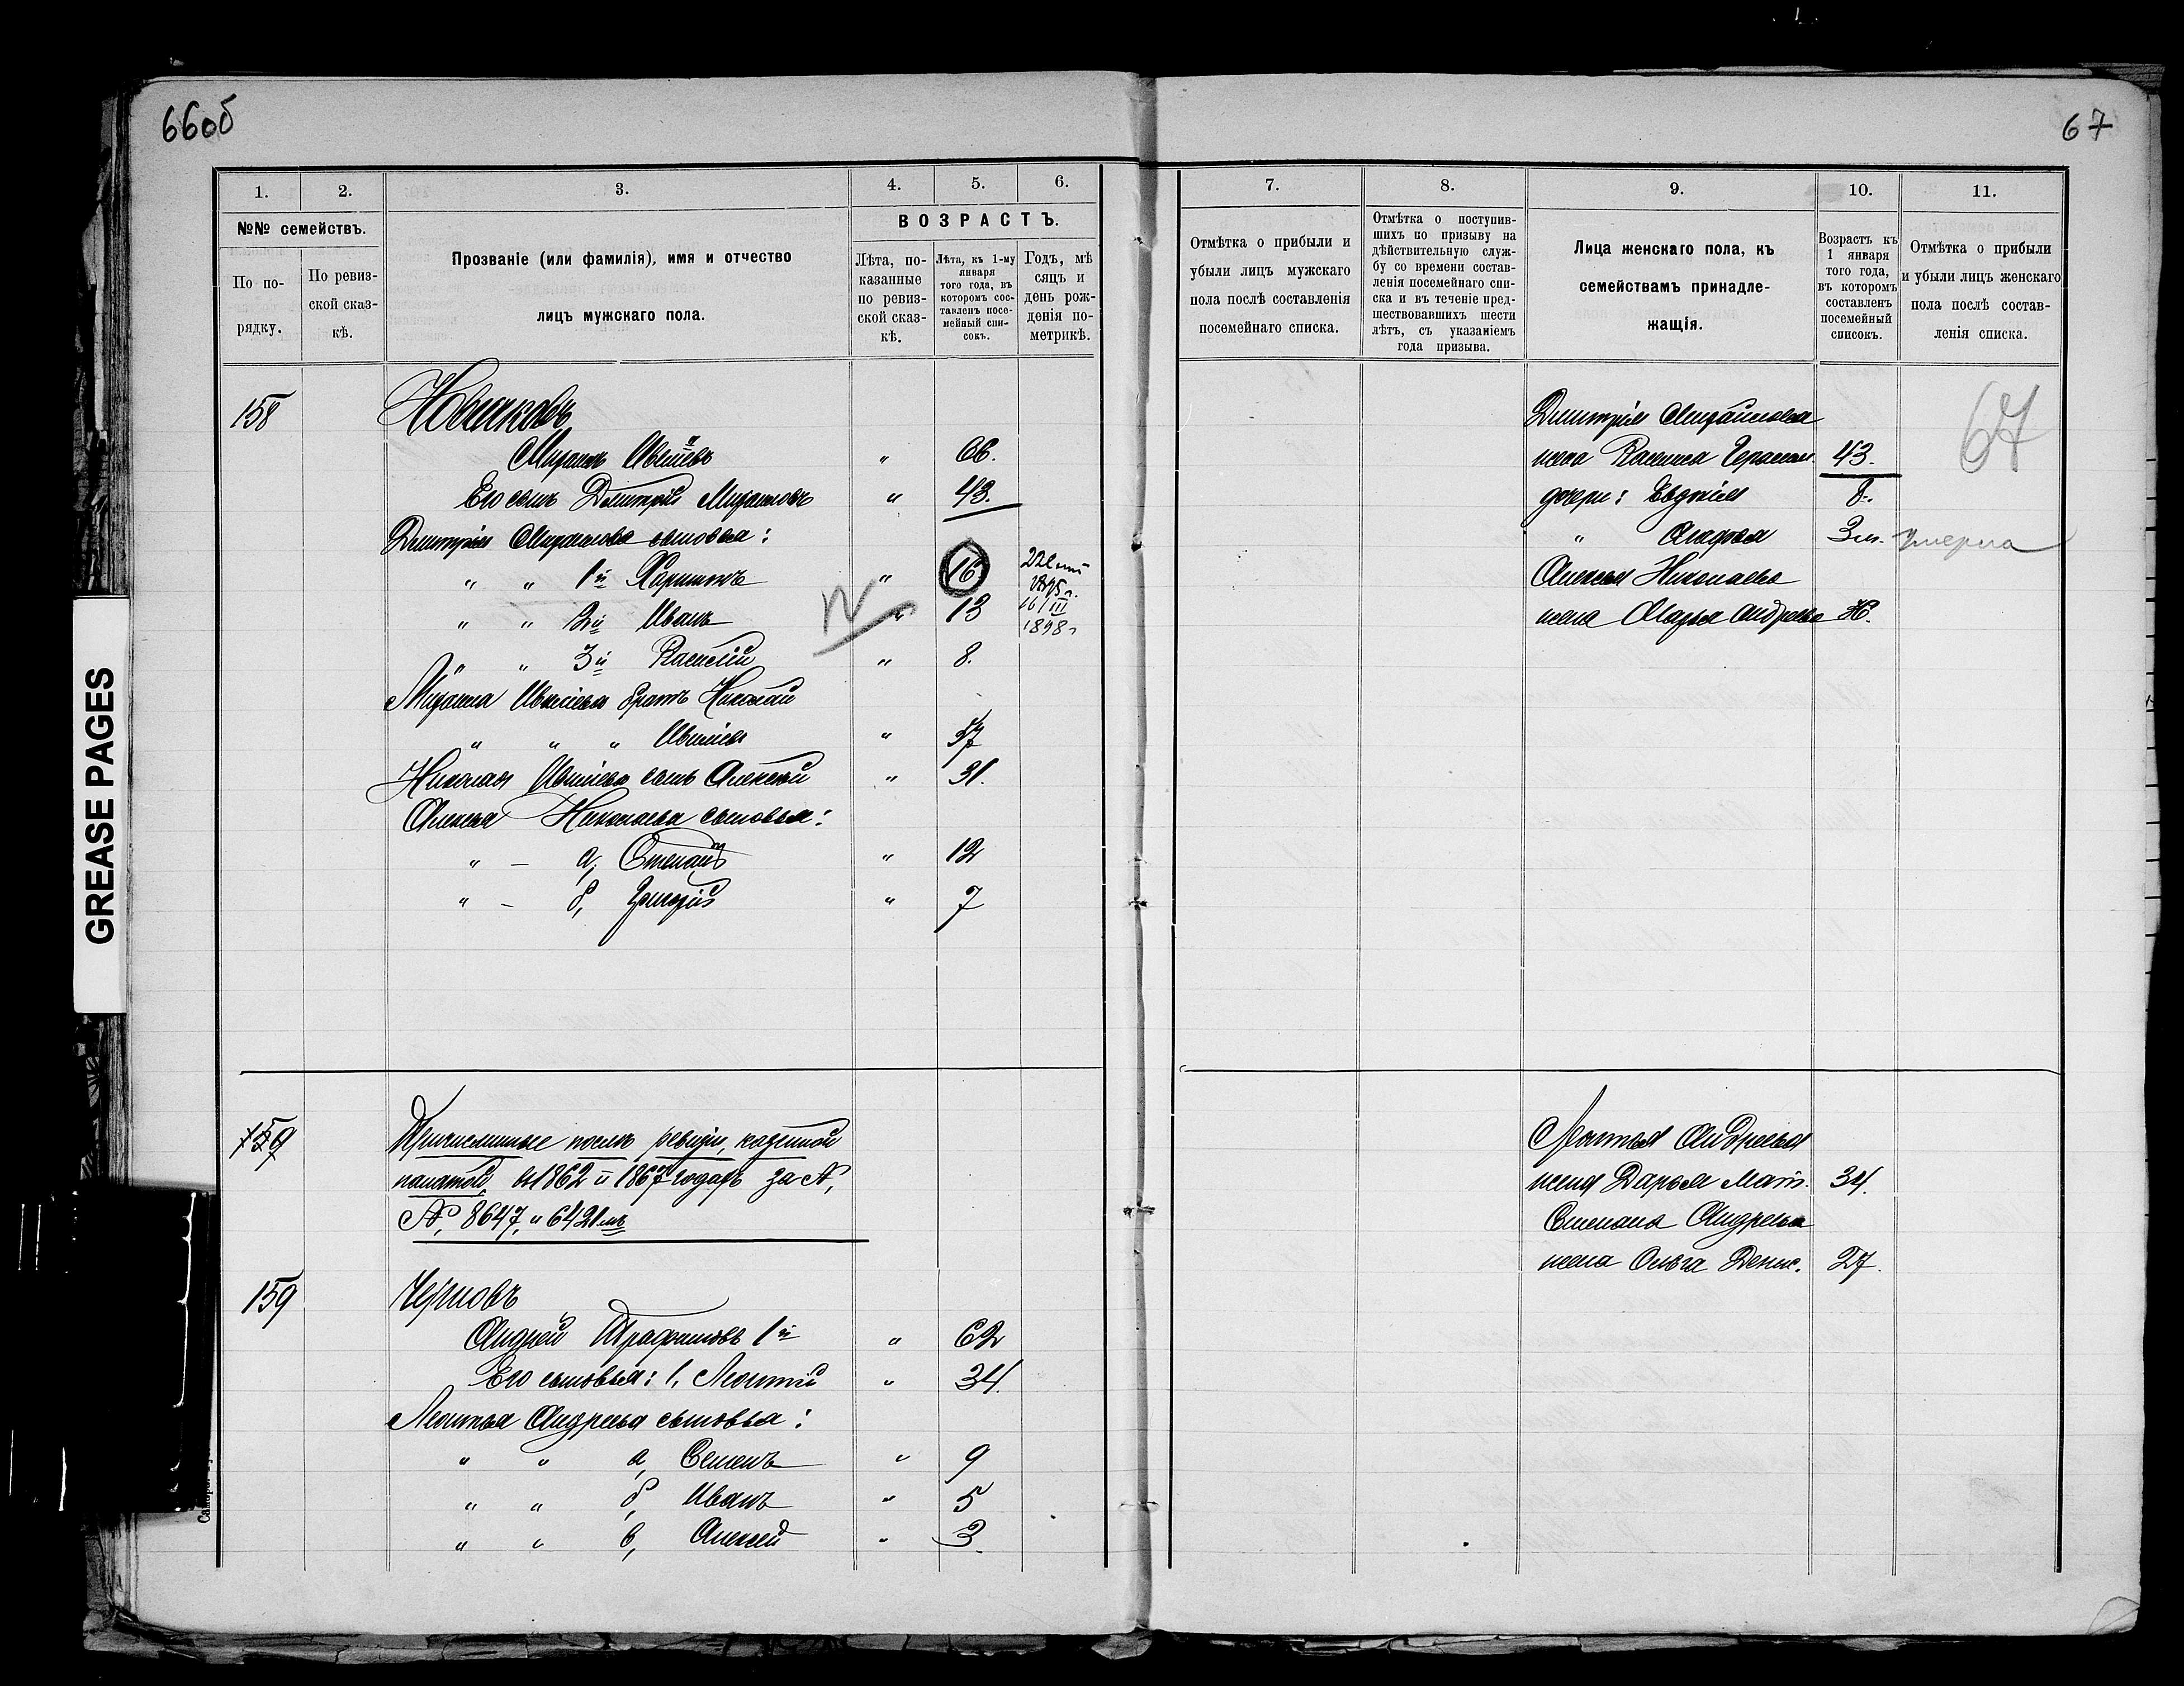 66об
67
1.
2.
3.
4.
5.
6.
№№ семействъ.
По по-
рядку.
По ревиз-
ской сказ-
кѣ.
Прозваніе (или фамилія), имя и отчество
лицъ мужскаго пола.
ВОЗРАСТЪ.
Лѣта, по-
казанные
по ревиз-
ской сказ-
кѣ.
Лѣта, къ 1-му
января
того года, въ
которомъ сос-
тавленъ посе-
мейный спи-
сокъ.
Годъ, мѣ
сяцъ и
день рож-
денія по-
метрикѣ.
158
Новиковъ
Михаилъ 66.
Его сынъ Дмитрій Михаиловъ " 43.
Дмитрія Михаилова сыновья:
" " 1й Харитонъ " 16
" " 2й Иванъ " 13 16/III 1898 г
" " 3й Василій " 8.
Михаила братъ Николай
" " " " 57
Николая сынъ Алексѣй " 31.
Алексѣя Николаева сыновья:
" – а, Степанъ " 12
" – б, Григорій " 7
159
Причисленные послѣ ревизіи, казенной
палатой, въ 1862 и 1867 годахъ за №,
№, 8647, и 6421мъ
159 Черновъ
Андрей Трафимовъ 1й " 62
Его сыновья: 1, Леонтій " 34.
Леонтья Андреева сыновья:
" " а, Семенъ " 9
" " б, Иванъ " 5
" " в, Алексей " 3.
GREASE PAGES
7.
8.
9.
10.
11.
Отмѣтка о прибыли и
убыли лицъ мужскаго
пола послѣ составленія
посемейнаго списка.
Отмѣтка о поступив-
шихъ по призыву на
дѣйствительную служ-
бу со времени состав-
ленія посемейнаго спи-
ска и въ теченіе пред-
шествовавшихъ шести
лѣтъ, съ указаніемъ
года призыва.
Лица женскаго пола, къ
семействамъ принадле-
жащія.
Возрастъ къ
1 января
того года,
въ которомъ
составленъ
посемейный
списокъ.
Отмѣтка о прибыли
и убыли лицъ женскаго
пола послѣ состав-
ленія списка.
67
Дмитрія Михаилова
жена Васс­иса Герасим. 43.
дочери: Евдокія 8.
" Агафья 3 м. умерла
Алексея Николаева
жена Марья Андреева
Леонтья Андреева
жена Дарья Мат. 34.
Степана Андреева
жена Ольга Денис. 27.